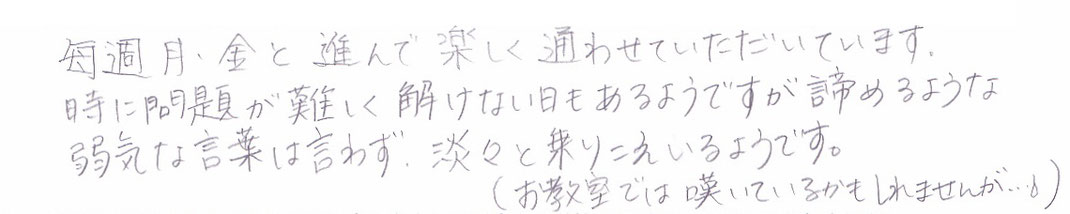 毎週月・金と進んで楽しく通わせていただいています.
時に問題が難しく解けない日もあるようですが諦めるような
弱気な言葉は言わず.淡々と乗りこえいるようです。
(お教室では嘆いているかもしれませんが…♪)